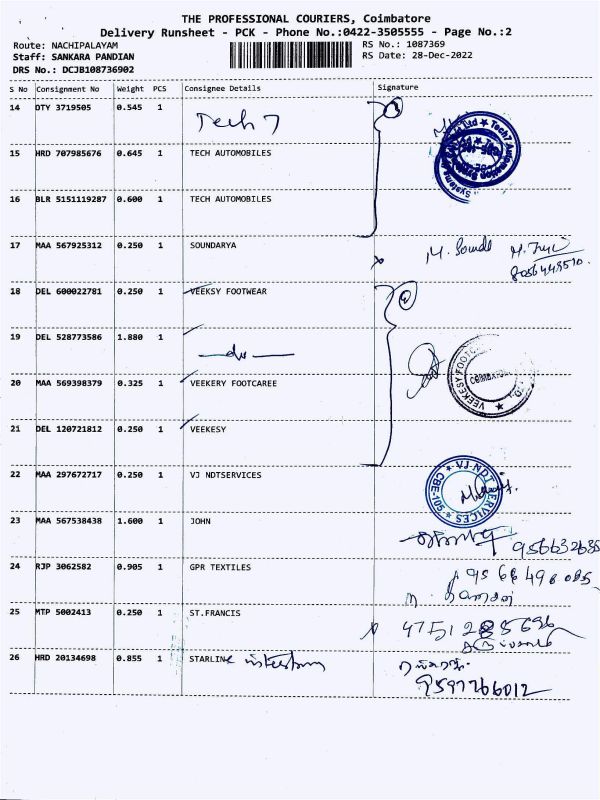 THE PROFESSIONAL COURIERS, Coimbatore
Delivery Runsheet - PCK - Phone No.:0422-3505555 - Page No.:2
Route: NACHIPALAYAM RS No.: 1087369
Staff: SANKARA PANDIAN RS Date: 28-Dec-2022
DRS No.: DCJB108736902
S No Consignment No Weight PCS Consignee Details Signature
14 OTY 3719505 0.545 1 Tech 7
15 HRD 707985676 0.645 1 TECH AUTOMOBILES
16 BLR 5151119287 0.600 1 TECH AUTOMOBILES
17 MAA 567925312 0.250 1 SOUNDARYA
18 DEL 600022781 0.250 1 VEEKSY FOOTWEAR
19 DEL 528773586 1.880 1
20 MAA 569398379 0.325 1 VEEKERY FOOTCAREE
21 DEL 120721812 0.250 1 VEEKESY
22 MAA 297672717 0.250 1 VJ NDTSERVICES VJ NDT SERVICES
23 MAA 567538438 1.600 1 JOHN
24 RJP 3062582 0.905 1 GPR TEXTILES
25 MTP 5002413 0.250 1 ST.FRANCIS
26 HRD 20134698 0.855 1 STARLINE
9597266012